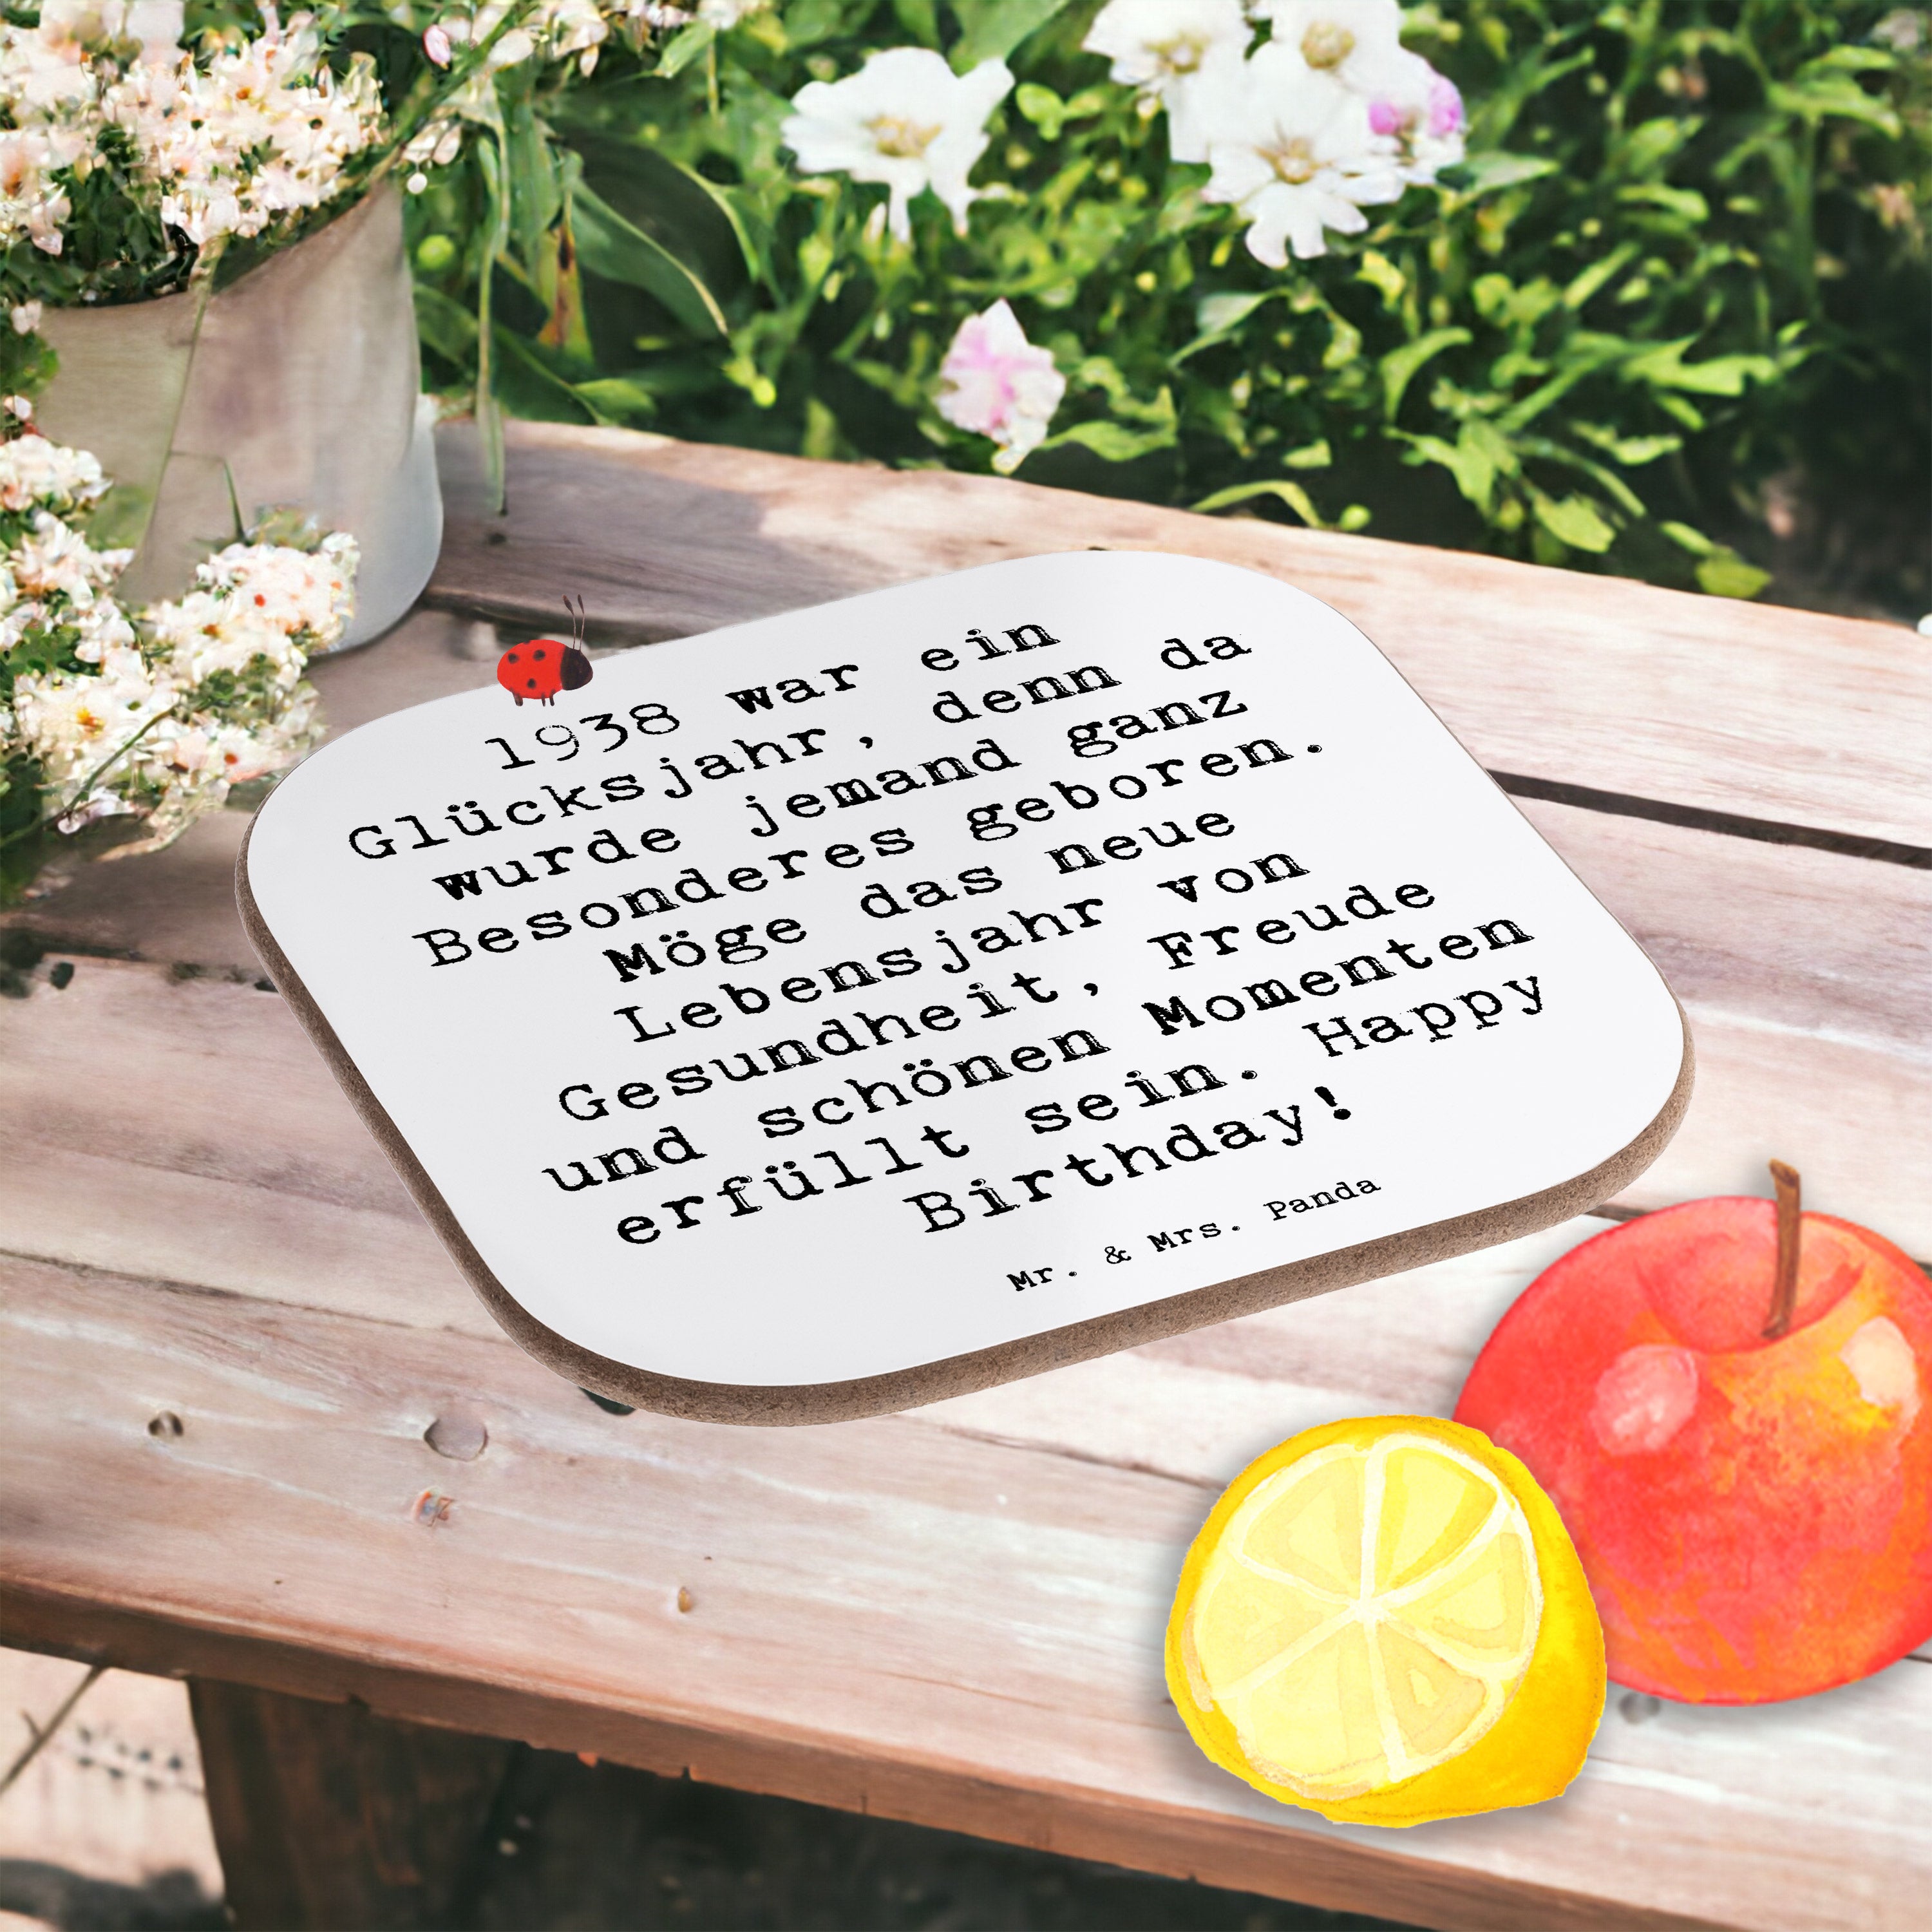 1938 war ein
Glücksjahr, denn da
wurde jemand ganz
Besonderes geboren.
Möge das neue
Lebensjahr von
Gesundheit, Freude
und schönen Momenten
erfüllt sein. Happy
Birthday!
Mr. & Mrs. Panda